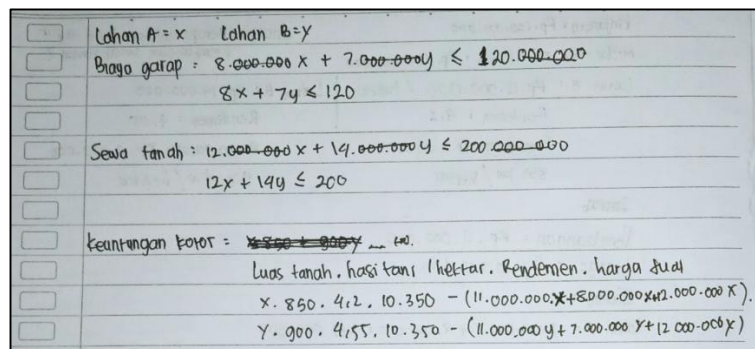 Lahan A = x Lahan B = y
Biaya garap : 8.000.000 x + 7.000.000y ≤ 120.000.000
8x + 7y ≤ 120
Sewa tanah : 12.000.000 x + 14.000.000 y ≤ 200.000.000
12x + 14y ≤ 200
Keuntungan kotor =
Luas tanah . hasil tani / hektar . Rendemen . harga jual
x . 850 . 4,2 . 10.350 - (11.000.000.x + 8.000.000 x + 12.000.000 x).
Y . 900 . 4,55 . 10.350 - (11.000.000 y + 7.000.000 y + 12.000.000 y)